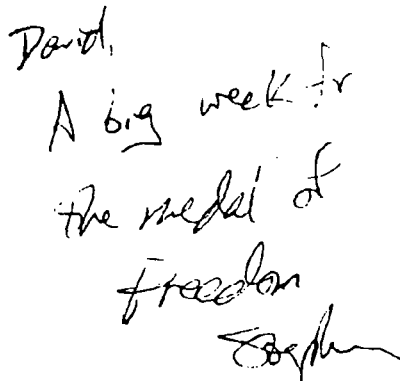 David,
A big week for
the medal of
Freedom
Stephen